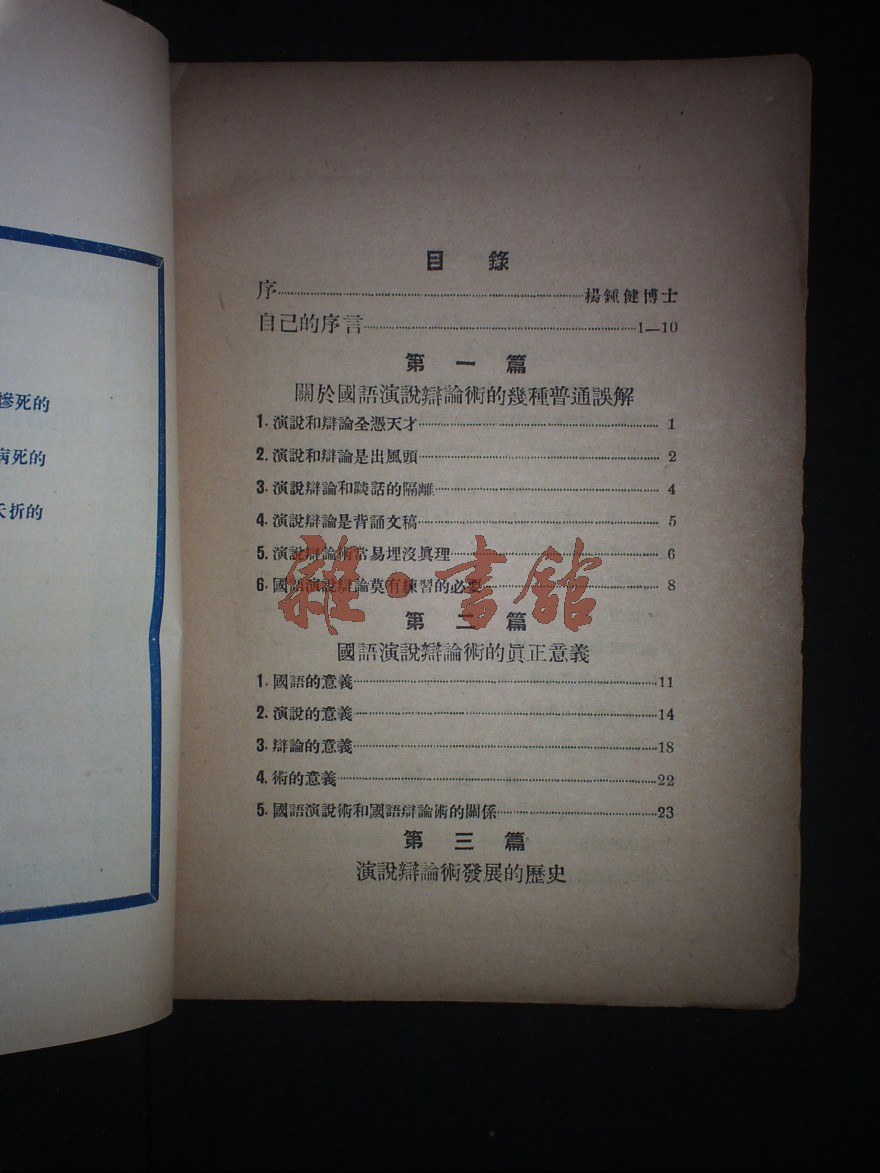 慘死的
病死的
夭折的
目 錄
序……楊鍾健博士
自己的序言……1—10
第 一 篇
關於國語演說辯論術的幾種普通誤解
1. 演說和辯論全憑天才……1
2. 演說和辯論是出風頭……2
3. 演說辯論和談話的隔離……4
4. 演說辯論是背誦文稿……5
5. 演說辯論術常易埋沒眞理……6
6. 國語演說辯論莫有練習的必要……8
雜·書舘
第 二 篇
國語演說辯論術的眞正意義
1. 國語的意義……11
2. 演說的意義……14
3. 辯論的意義……18
4. 術的意義……22
5. 國語演說術和國語辯論術的關係……23
第 三 篇
演說辯論術發展的歷史